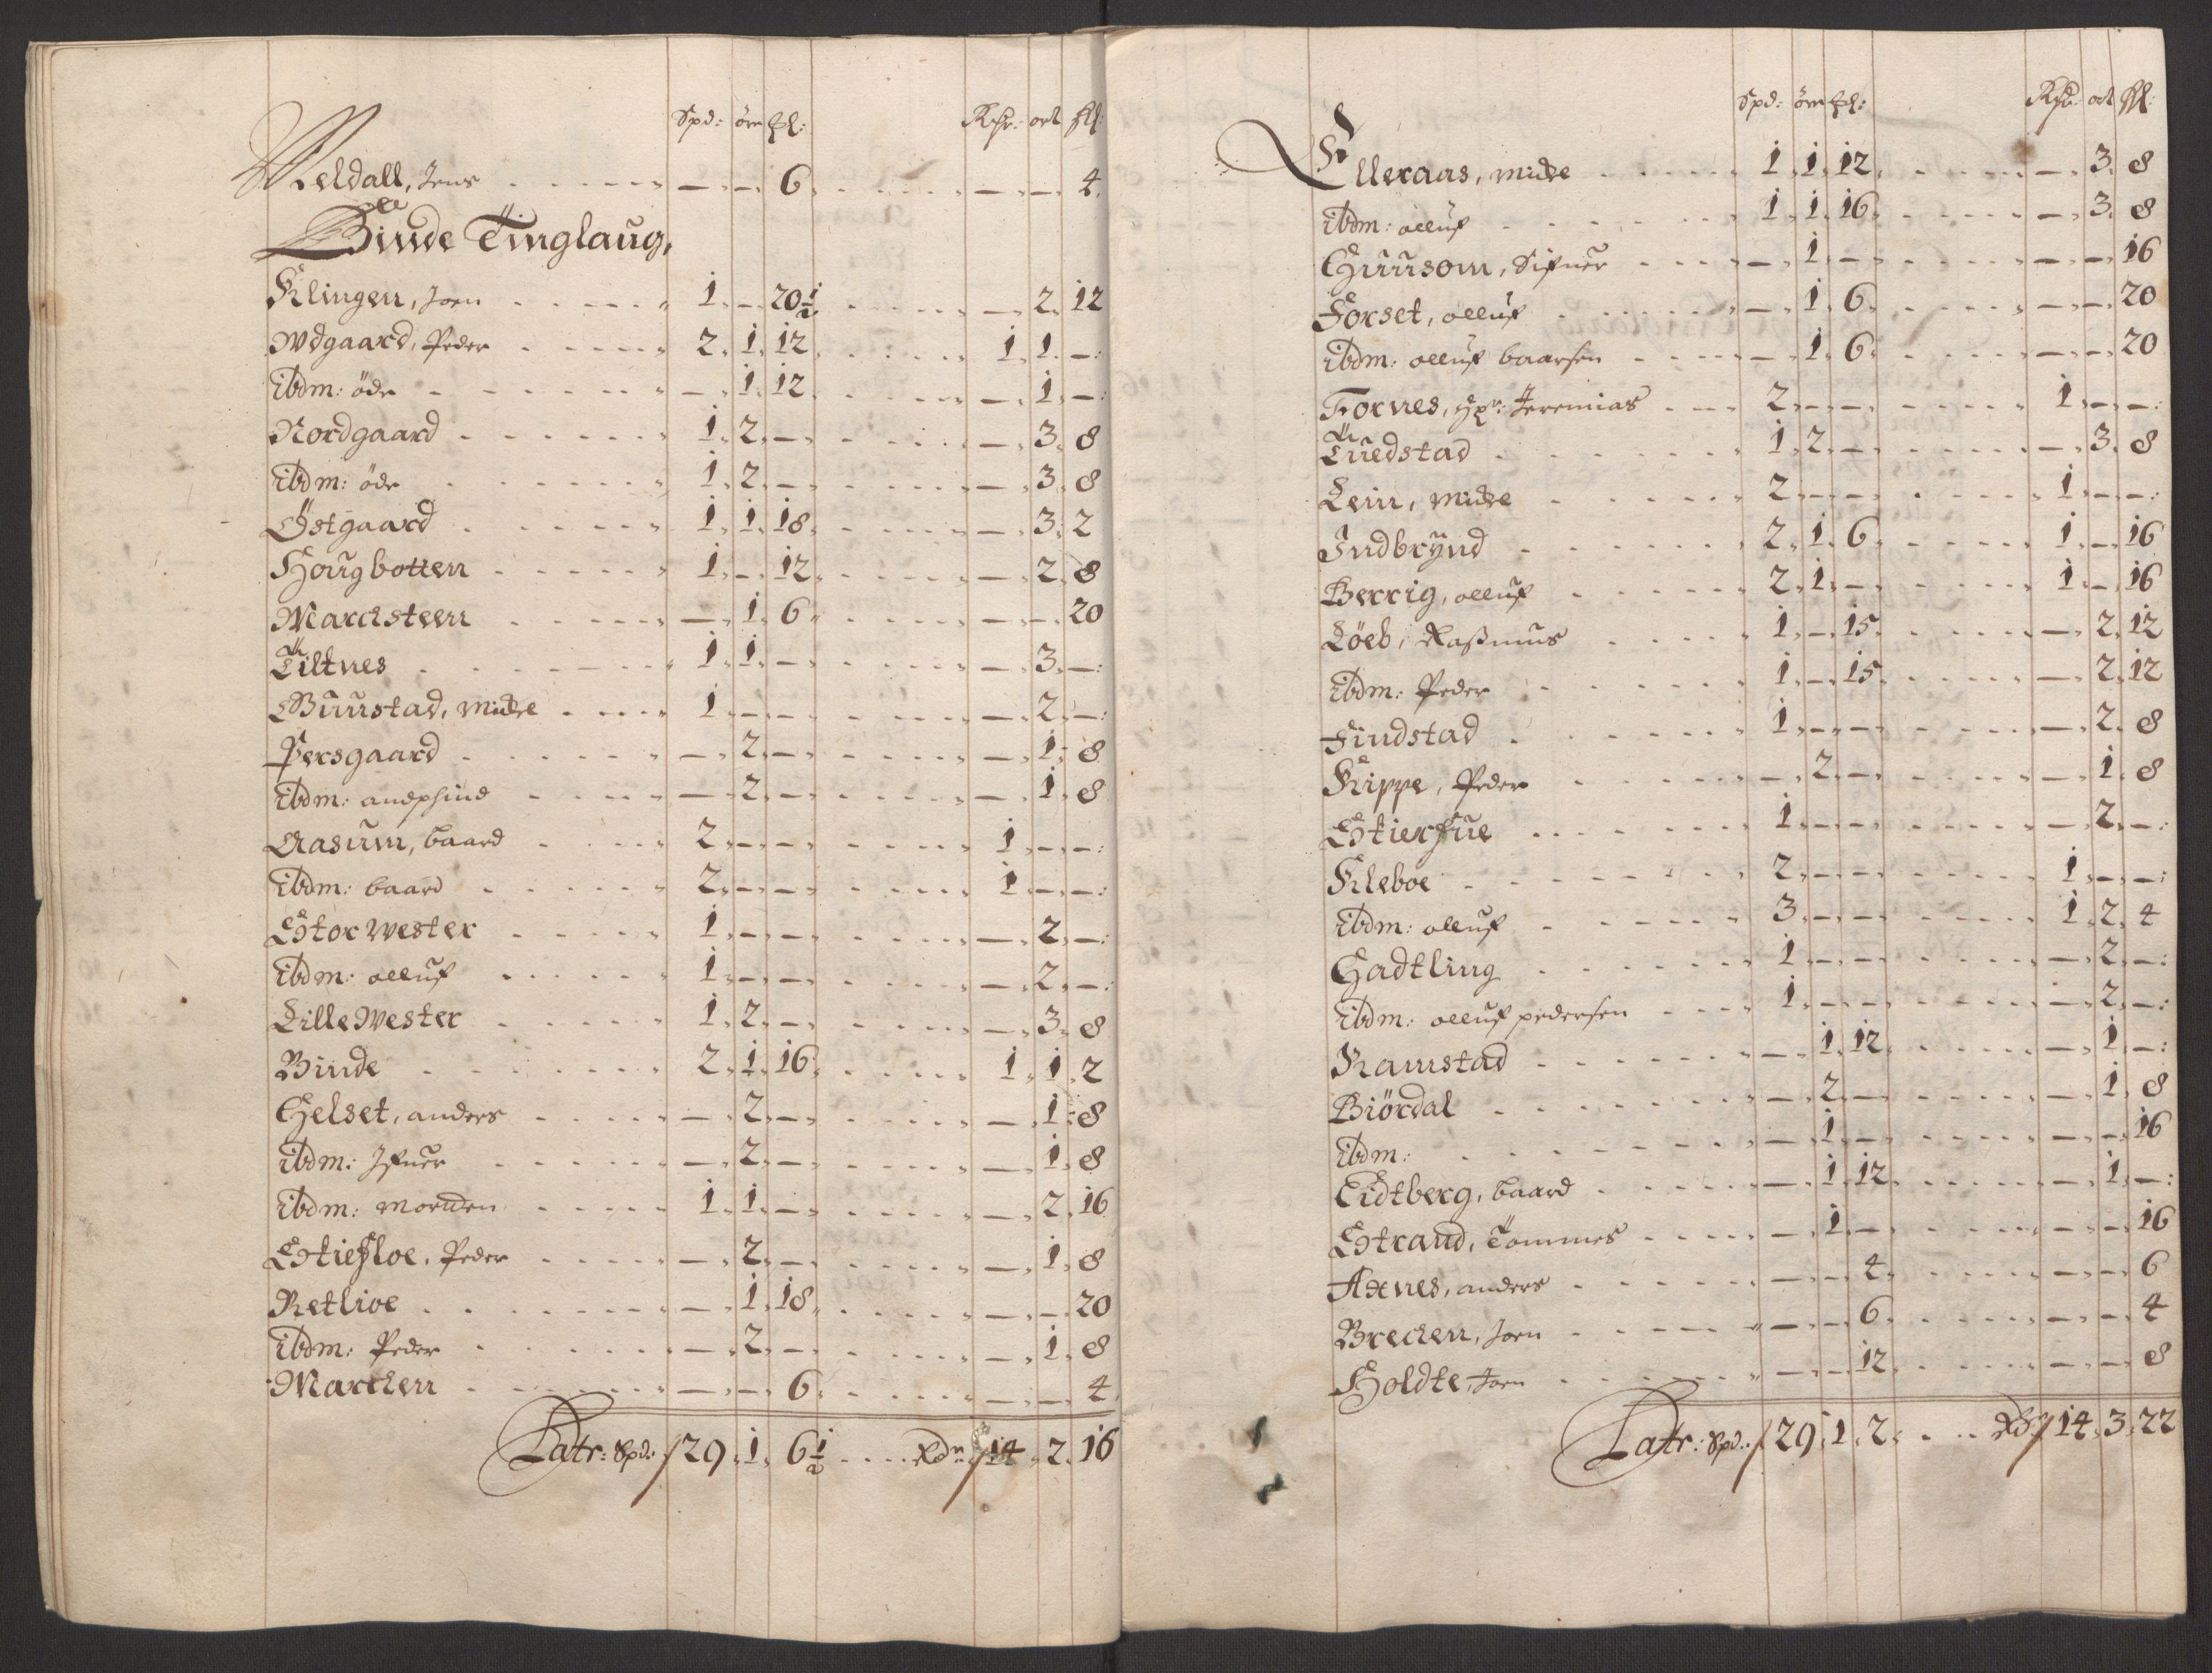 Spd: ører ʒl: Rdr: ort ßl:
Meldall, Jens — — 6 — — 4
Binde Tinglaug,
Klingen, Joen 1 — 20½ — 2 12
Wdgaard, Peder 2 1 12 1 1 —
ibdm: öde — 1 12 — 1 —
Nordgaard 1 2 — — 3 8
ibdm: öde 1 2 — — 3 8
Östgaard 1 1 18 — 3 2
Hougbotten 1 — 12 — 2 8
Marchsteen — 1 6 — — 20
Tiltnes 1 1 — — 3 —
Buustad, Midre 1 — — — 2 —
Persgaard — 2 — — 1 8
ibdm: andphind — 2 — — 1 8
Aasum, baard 2 — — 1 — —
ibdm: baard 2 — — 1 — —
StorWester 1 — — — 2 —
ibdm: olluf 1 — — — 2 —
LilleWester 1 2 — — 3 8
Binde 2 1 16 1 1 2
Gelset, anders — 2 — — 1 8
ibdm: Ifuer — 2 — — 1 8
ibdm: Morten 1 1 — — 2 16
Stiefloe, Peder — 2 — — 1 8
Retlioe — 1 18 — — 20
ibdm: Peder — 2 — — 1 8
Marchen — — 6 — — 4
Latr: Spd: 29 1 6½ Rdr 14 2 16
Spd: ører ʒl: Rdr: ort ßl:
Elleraas, Midre 1 1 12 — 3 8
ibdm: olluf 1 1 16 — 3 8
Guusom, Sifuer — 1 — — — 16
Forset, olluf — 1 6 — — 20
ibdm: olluf baarsen — 1 6 — — 20
Fornes, Hr: Jeremias 2 — — 1 — —
Tuedstad 1 2 — — 3 8
Lein, Midre 2 — — 1 — —
Indbrÿnd 2 1 6 1 — 16
Berrig, olluf 2 1 — 1 — 16
Löeb, Raßmus 1 — 15 — 2 12
ibdm: Peder 1 — 15 — 2 12
Findstad 1 — — — 2 8
Kippe, Peder — 2 — — 1 8
Stierfue 1 — — — 2 —
Kleboe 2 — — 1 — —
ibdm: olluf 3 — — 1 2 4
Gadtling 1 — — — 2 —
ibdm: olluf pedersen 1 — — — 2 —
Ramstad — 1 12 — 1 —
Biördal — 2 — — 1 8
ibdm: — 1 — — — 16
Eidtberg, baard — 1 12 — 1 —
Strand, Tommes — 1 — — — 16
Axnes, anders — — 4 — — 6
Brechen, Joen — — 6 — — 4
Holdte, Joen — — 12 — — 8
Latr: Spd: 29 1 2 Rdr 14 3 22